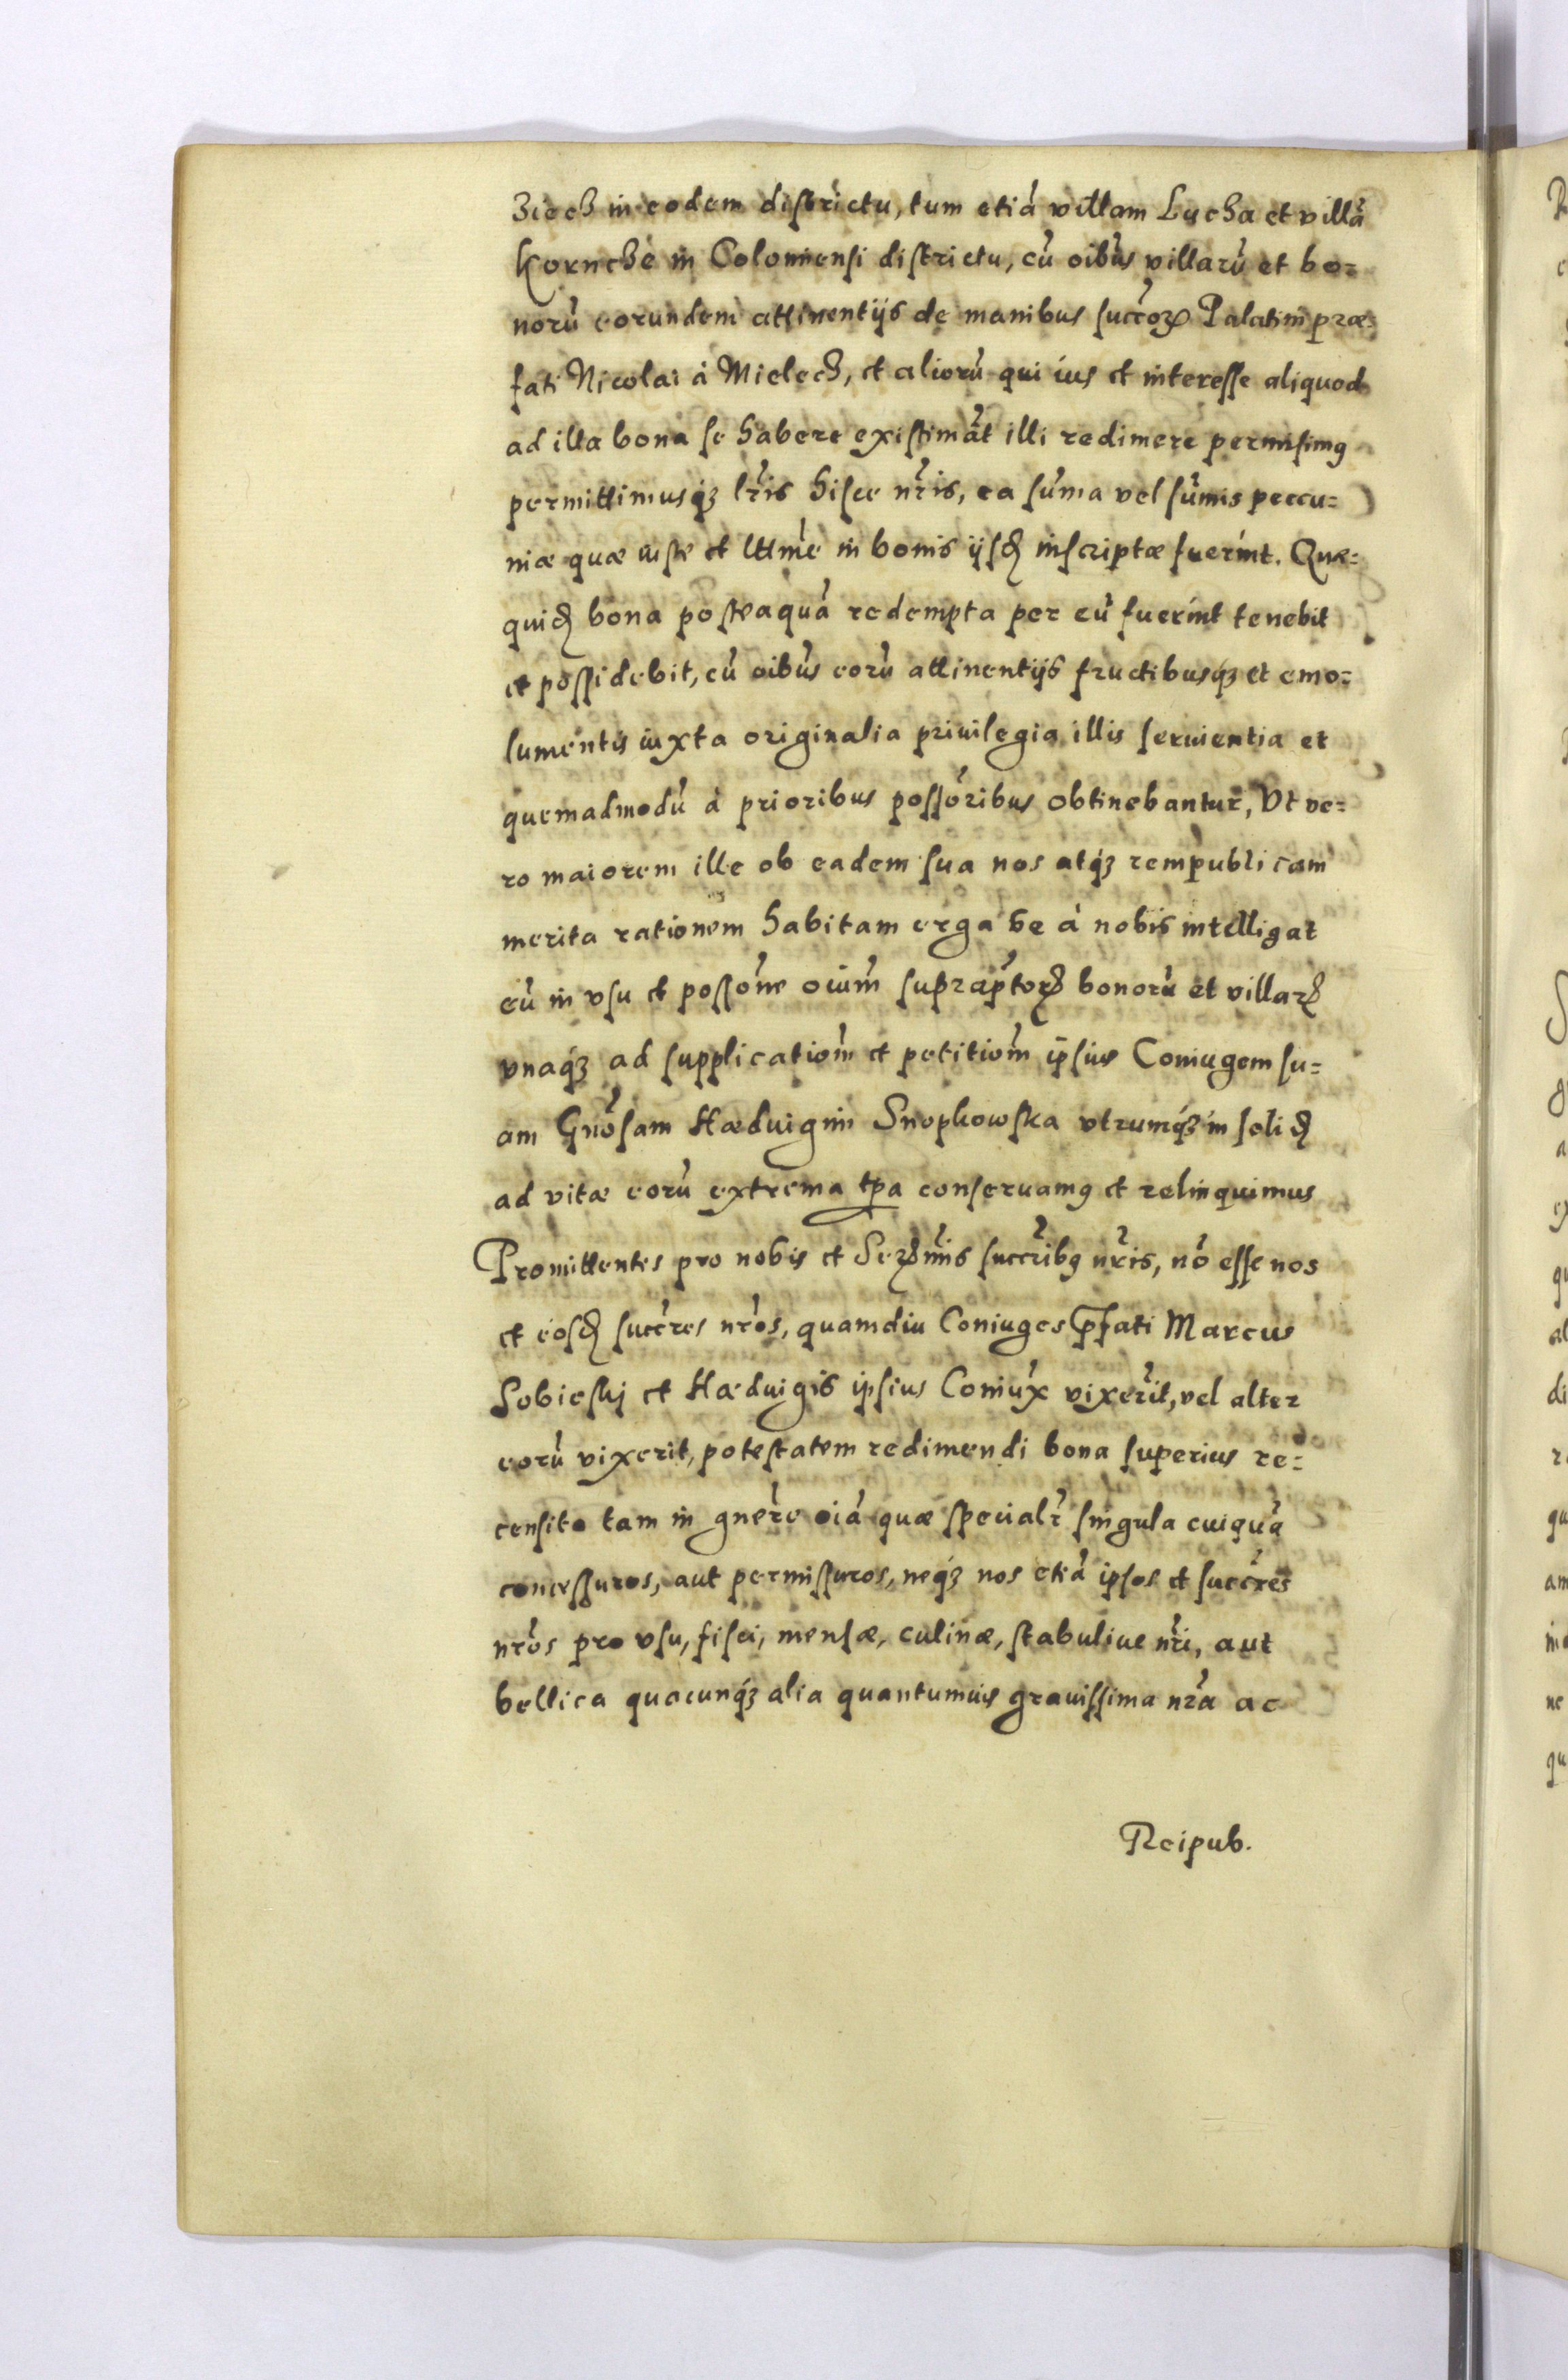 ziech in eodem districtu, tum etiā villam Lucha et villā
Kornche in Colomiensi districtu, cū oībus villarū et bo=
norū eorundem attinentijs de manibus succorꝝ Palatini præ=
fati Nicolai à Mielech, et aliorū qui ius et interesse aliquod
ad illa bona se habere existimāt illi redimere permisimꝰ
permittimusqꝫ lr̃is hisce nr̃is, ea sum̃a vel sum̃is peccu=
niæ quæ iuste et lttīme in bonis ijsđ inscriptæ fuerint. Quæ=
quiđ bona posteaquā redempta per eū fuerint tenebit
et possidebit, cū oībus eorū attinentijs fructibusqꝫ et emo=
lumentis iuxta originalia priuilegia illis seruientia et
quemadmodū à prioribus possōribus obtinebantur, Vt ve=
ro maiorem ille ob eadem sua nos atqꝫ rempublicam
merita rationem habitam erga se à nobis intelligat
eū in vsu et possōne oiūm supraptorꝝ bonorū et villarꝝ
vnaqꝫ ad supplicatiom̃ et petitiom̃ ipsius Coniugem su=
am Gnōsam Hæduigim Snopkowska vtrumqꝫ in soliđ
ad vitæ eorū extrema tp̃a conseruamꝰ et relinquimus
Promittentes pro nobis et Serm̃is succr̃ibꝰ nr̃is, nō esse nos
et eosđ succr̃es nr̃os, quamdiu Coniuges p̃fati Marcus
Sobieskj et Hæduigis ipsius Coniux vixer̃it, vel alter
eorū vixerit, potestatem redimendi bona superius re=
censita tam in gner̃e oiā quæ specialr̃ singula cuiquā
concessuros, aut permissuros, neqꝫ nos etiā ipsos et succr̃es
nr̃os pro vsu, fisci, mensæ, culinæ, stabuliue nr̃i, aut
bellica quacunqꝫ alia quantumuis grauissima nr̃a ac
Reipub.